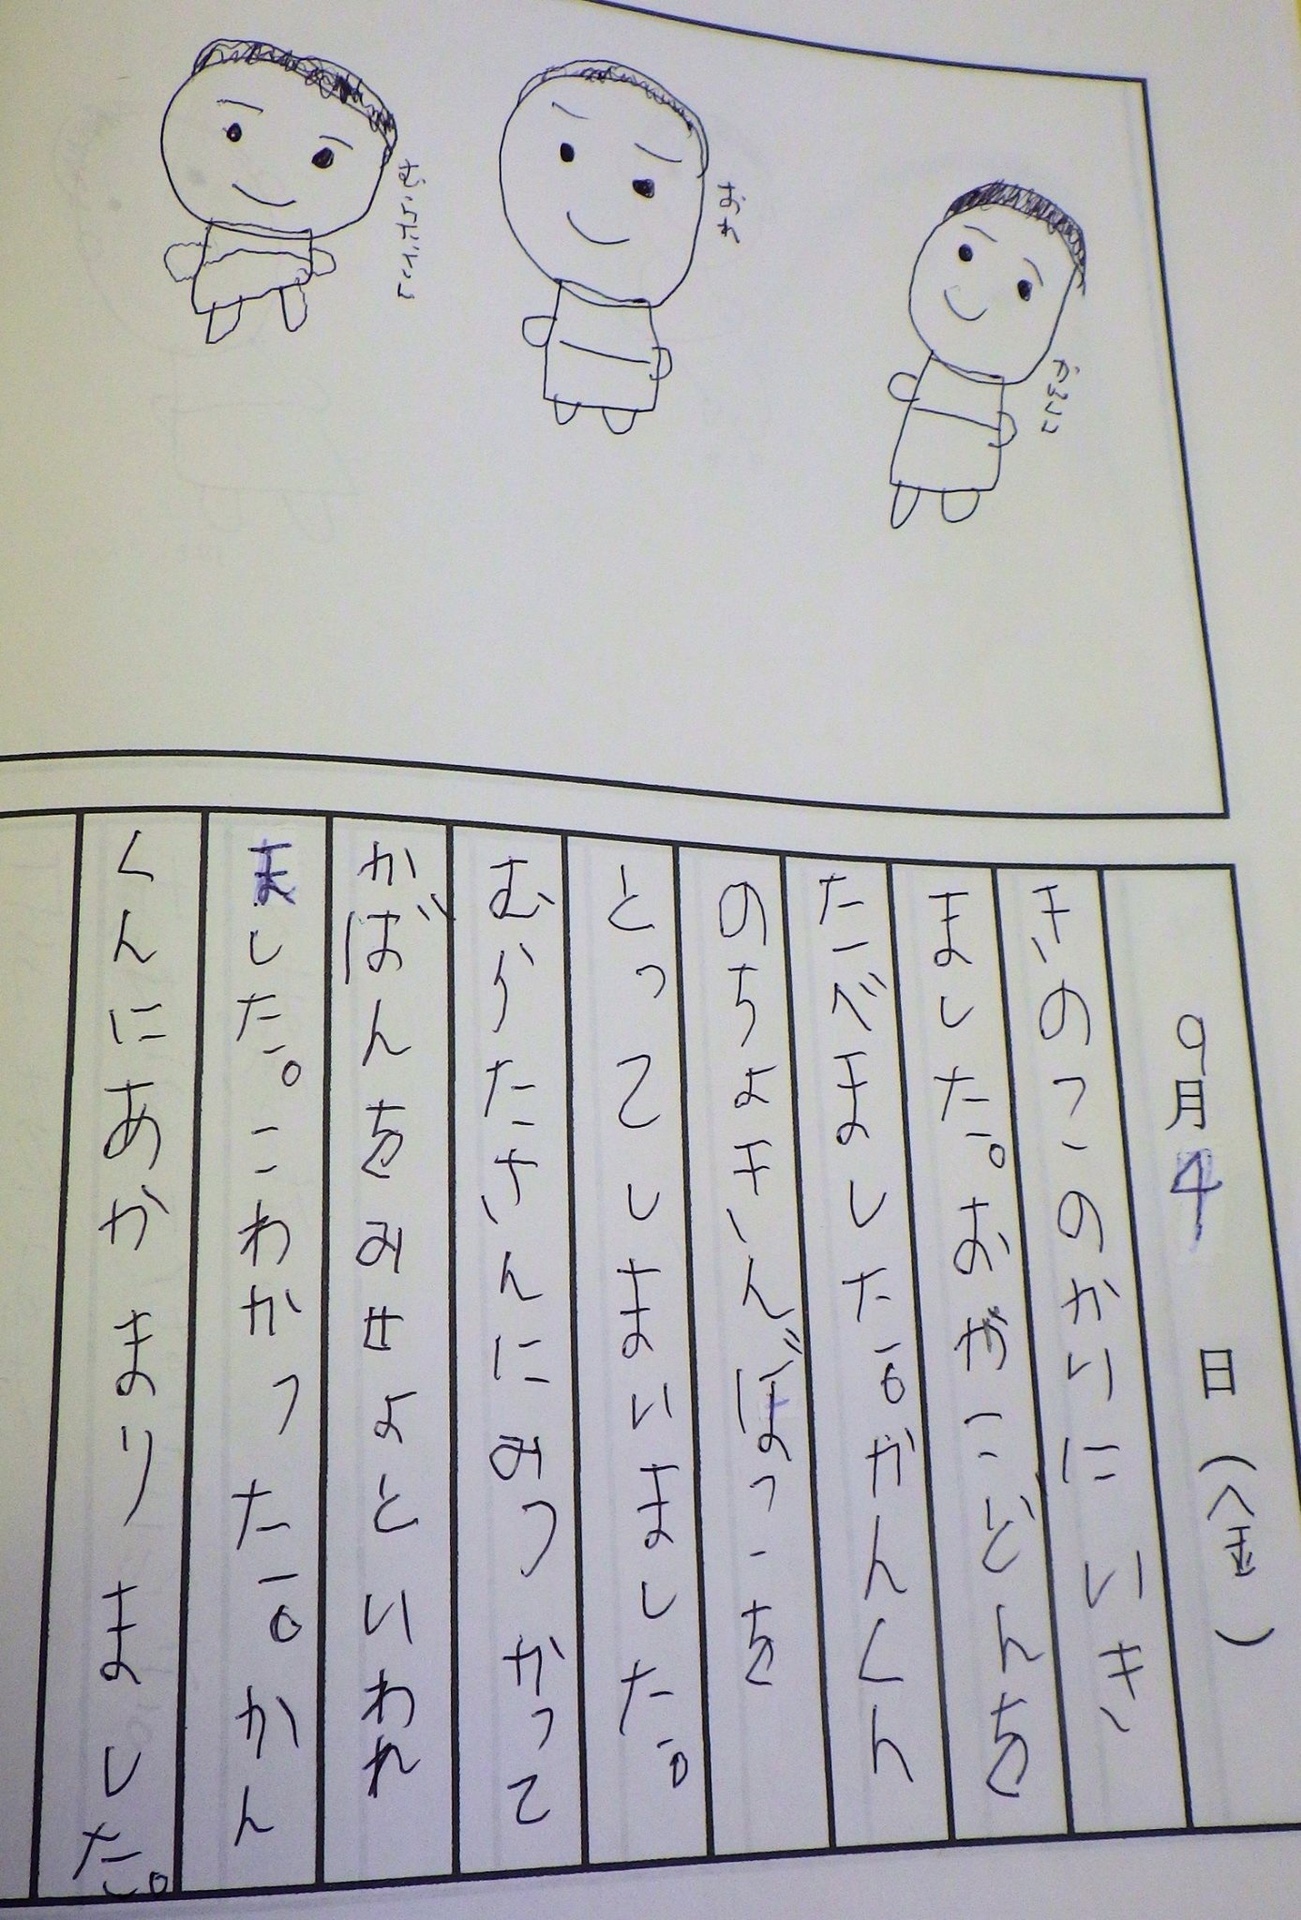 おれ
9月4日(金)
きのこのかりにいき
ました。おがこどんを
たべました。かんくん
のちょきんばっこを
とってしまいました。
むらたさんにみつかって
かばんをみせよといわれ
ました。こわかった。かん
くんにあやまりました。